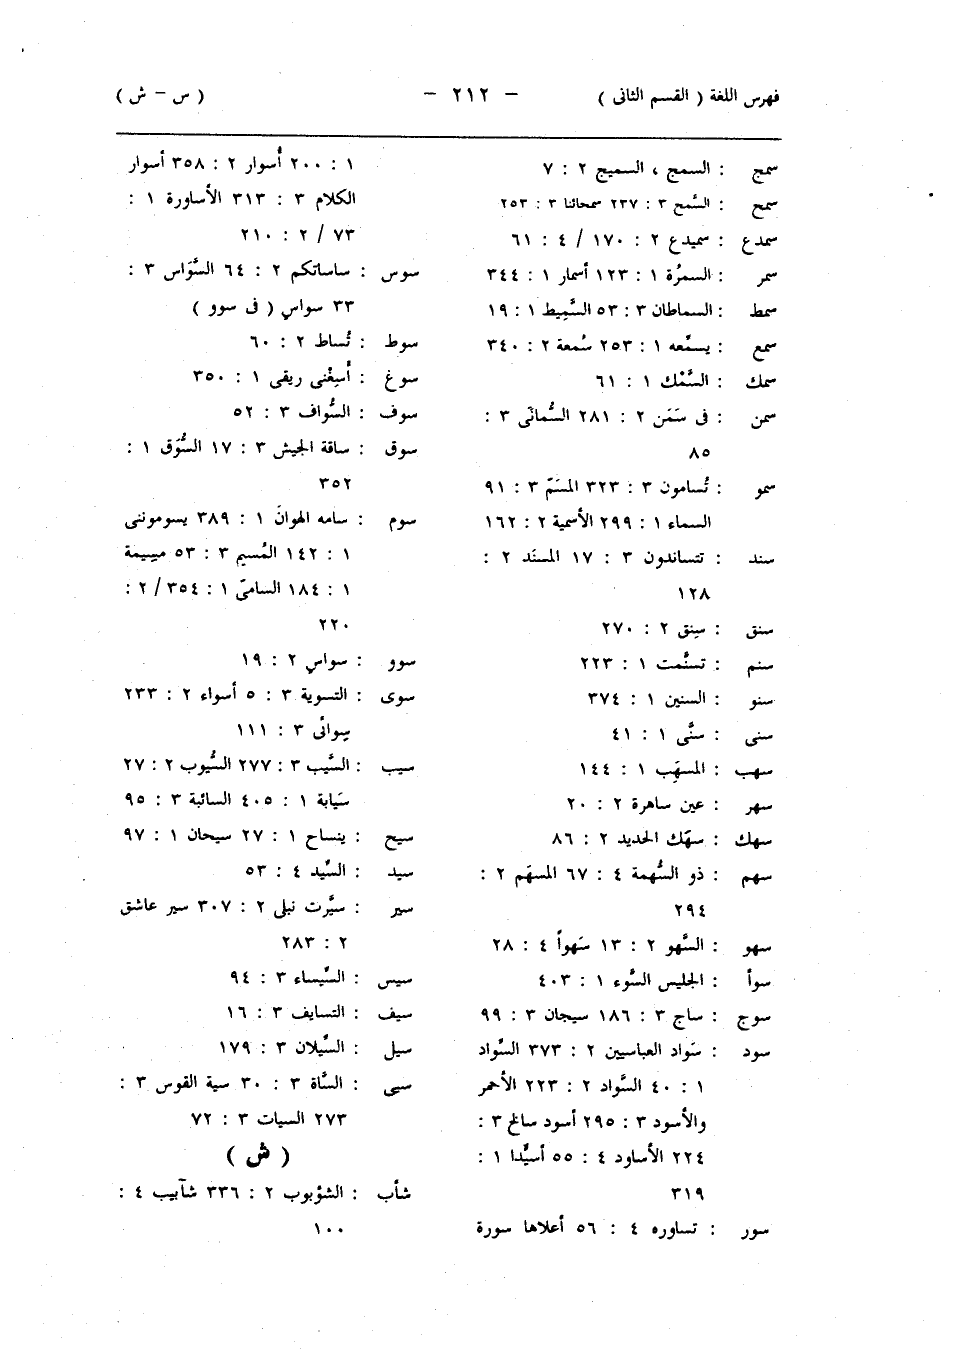 فهرس اللغة ( القسم الثانى ) — ٢١٢ — ( س — ش )
سمج : السمج ، السميج ٢ : ٧
سمح : السَّمح ٣ : ٢٣٧ سمحائنا ٣ : ٢٥٣
سمدع : سميدع ٢ : ١٧٠ / ٤ : ٦١
سمر : السمرُة ١ : ١٢٣ أسمار ١ : ٣٤٤
سمط : السماطان ٣ : ٥٣ السَّمِيط ١ : ١٩
سمع : يسمِّعه ١ : ٢٥٣ سُمعة ٢ : ٣٤٠
سمك : السَّمْك ١ : ٦١
سمن : فى سَمَن ٢ : ٢٨١ السُّمانَى ٣ :
٨٥
سمو : تُسامون ٣ : ٣٢٣ المسَمّ ٣ : ٩١
السماء ١ : ٢٩٩ الأسمية ٢ : ١٦٢
سند : تتساندون ٣ : ١٧ المسنَد ٢ :
١٢٨
سنق : سنِق ٢ : ٢٧٠
سنم : تسنَّمت ١ : ٢٢٣
سنو : السنين ١ : ٣٧٤
سنى : سنَّى ١ : ٤١
سهب : المسهَِب ١ : ١٤٤
سهر : عين ساهرة ٢ : ٢٠
سهك : سهَك الحديد ٢ : ٨٦
سهم : ذو السُّهمة ٤ : ٦٧ المسهَم ٢ :
٢٩٤
سهو : السَّهو ٢ : ١٣ سَهواً ٤ : ٢٨
سوأ : الجليس السَّوء ١ : ٤٠٣
سوج : ساج ٣ : ١٨٦ سيجان ٣ : ٩٩
سود : سَواد العباسيين ٢ : ٣٧٣ السِّواد
١ : ٤٠ السَّواد ٢ : ٢٢٣ الأحمر
والأسود ٣ : ٢٩٥ أسود سالخ ٣ :
٢٢٤ الأساود ٤ : ٥٥ أسيِّدا ١ :
٣١٩
سور : تساوره ٤ : ٥٦ أعلاها سورة
١ : ٢٠٠ أُسوار ٢ : ٣٥٨ أسوار
الكلام ٣ : ٣١٣ الأساورة ١ :
٧٣ / ٢ : ٢١٠
سوس : ساساتكم ٢ : ٦٤ السَّوَاس ٣ :
٣٣ سواسٍ ( فى سوو )
سوط : تُساط ٢ : ٦٠
سوغ : أسِغْنى ريقى ١ : ٣٥٠
سوف : السُّواف ٣ : ٥٢
سوق : ساقة الجيش ٣ : ١٧ السُّوَق ١ :
٣٥٢
سوم : سامه الهوانَ ١ : ٣٨٩ يسوموننى
١ : ١٤٢ المُسيم ٣ : ٥٣ ميسيمة
١ : ١٨٤ السامىّ ١ : ٣٥٤ / ٢ :
٢٢٠
سوو : سواسٍ ٢ : ١٩
سوى : التسوية ٣ : ٥ أسواء ٢ : ٢٣٣
سِوائى ٣ : ١١١
سيب : السَّيب ٣ : ٢٧٧ السُّيوب ٢ : ٢٧
سَيَابة ١ : ٤٠٥ السائبة ٣ : ٩٥
سيح : ينساح ١ : ٢٧ سيحان ١ : ٩٧
سيد : السِّيد ٤ : ٥٣
سير : سيَّرت نبلى ٢ : ٣٠٧ سير عاشق
٢ : ٢٨٣
سيس : السِّيساء ٣ : ٩٤
سيف : التسايف ٣ : ١٦
سيل : السِّيلان ٣ : ١٧٩
سيى : السَّاة ٣ : ٣٠ سية القوس ٣ :
٢٧٣ السيات ٣ : ٧٢
( ش )
شأب : الشؤبوب ٢ : ٣٣٦ شآبيب ٤ :
١٠٠